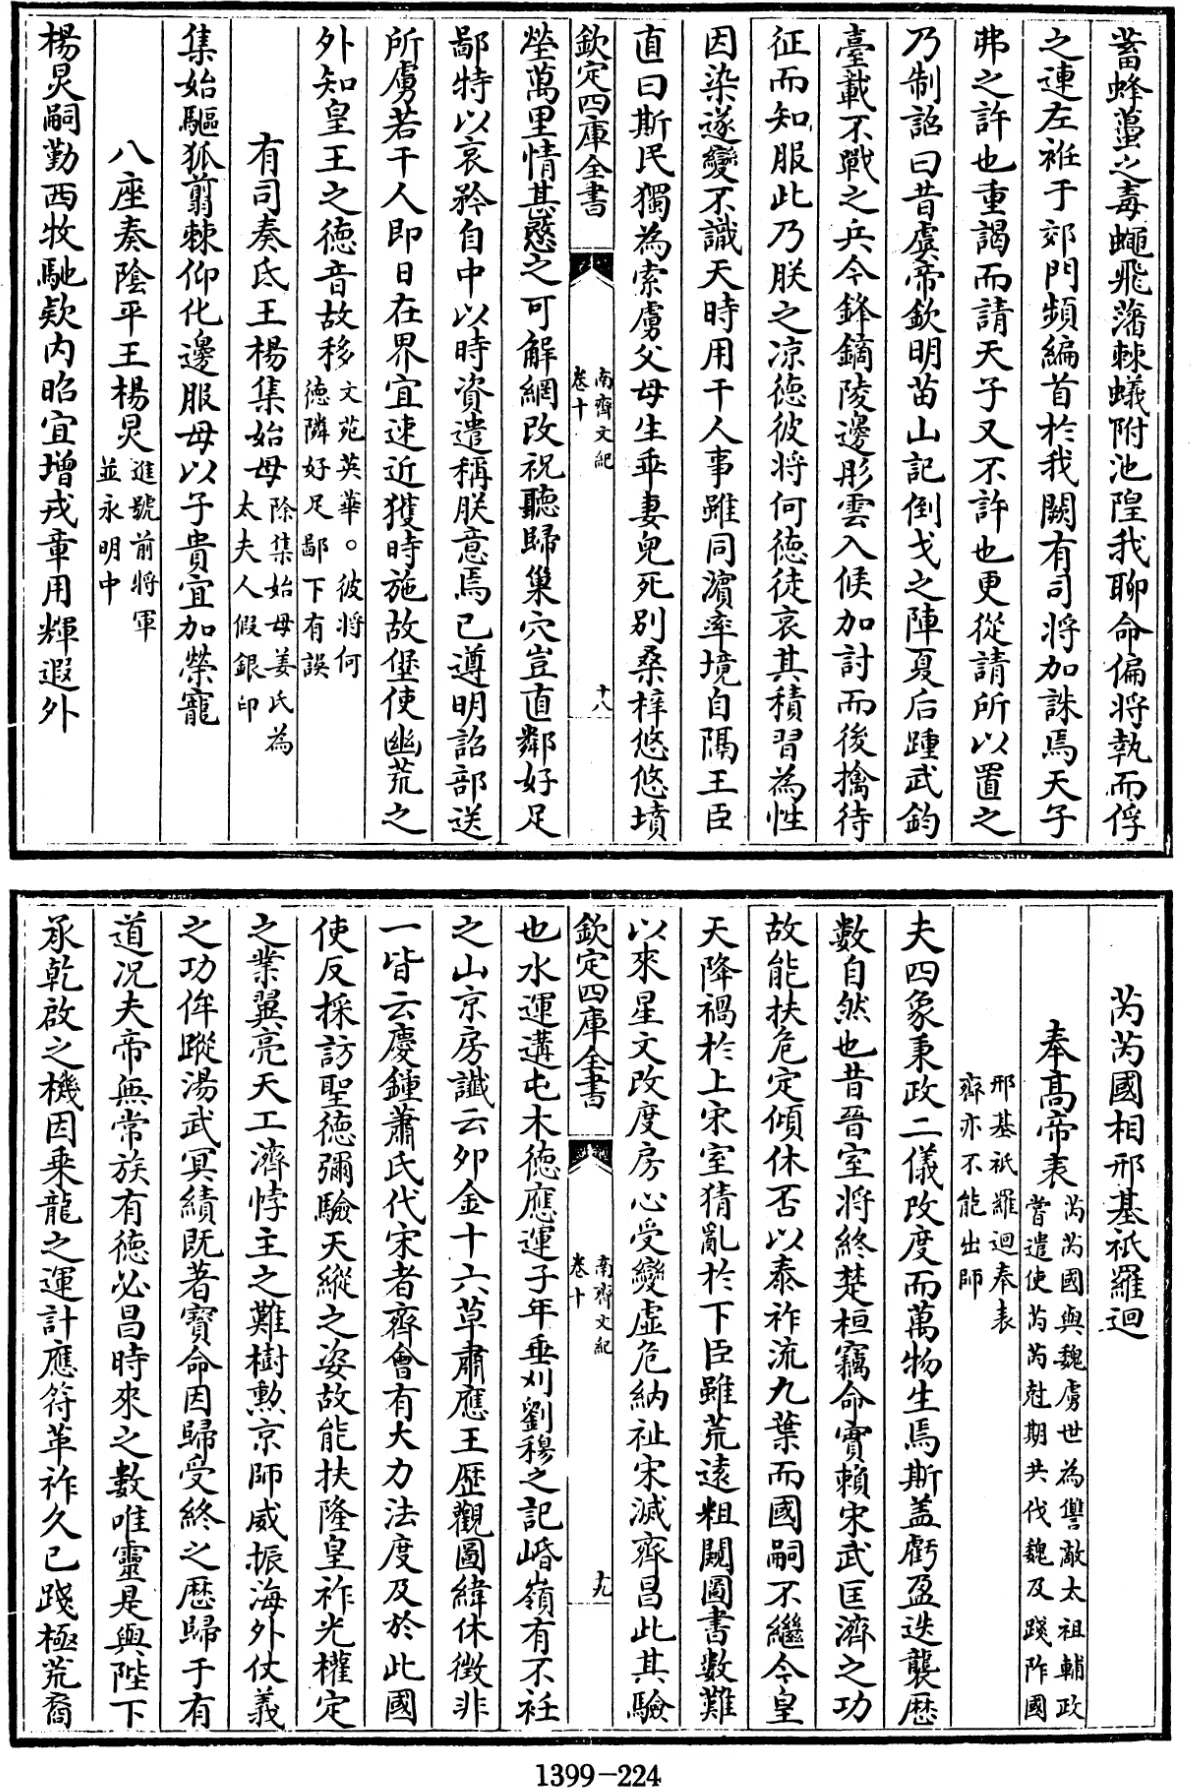 蓄蜂蠆之毒蠅飛藩棘蟻附池隍我聊命偏將執而俘
之連左袵于郊門頻編首於我闕有司將加誅焉天子
弗之許也重謁而請天子又不許也更從請所以置之
乃制詔曰昔虞帝欽明苗山記倒戈之陣夏后踵武鈞
臺載不戰之兵今鋒鏑陵邊彤雲入候加討而後擒待
征而知服此乃朕之涼德彼將何德徒哀其積習為性
因染遂變不識天時用干人事雖同濵率境自隔王臣
直曰斯民獨為索虜父母生乖妻兒死別桑梓悠悠墳
欽定四庫全書
南齊文紀
卷十
十八
塋萬里情甚愍之可解網改祝聽歸巢穴豈直鄰好足
鄙特以哀矜自中以時資遣稱朕意焉已遵明詔部送
所虜若干人即日在界宜速近獲時施故堡使幽荒之
外知皇王之德音故移文苑英華。彼將何德隣好足鄙下有誤
有司奏氐王楊集始母除集始母姜氏為太夫人假銀印
集始驅狐翦棘仰化邊服母以子貴宜加榮寵
八座奏陰平王楊炅進號前將軍並永明中
楊炅嗣勤西牧馳欵內昭宜增戎章用輝遐外
芮芮國相邢基祇羅迴
奉高帝表芮芮國與魏虜世為讐敵太祖輔政嘗遣使芮芮尅期共伐魏及踐阼國
邢基祇羅迴奉表齊亦不能出師
夫四象秉政二儀改度而萬物生焉斯盖虧盈迭襲歷
數自然也昔晉室將終楚桓竊命實賴宋武匡濟之功
故能扶危定傾休否以泰祚流九葉而國嗣不繼今皇
天降禍於上宋室猜亂於下臣雖荒遠粗闚圖書數難
以來星文改度房心受變虛危納祉宋滅齊昌此其驗
欽定四庫全書
南齊文紀
卷十
十九
也水運遘屯木德應運子年垂刈劉穆之記崏嶺有不衽
之山京房讖云夘金十六草肅應王歷觀圖緯休徴非
一皆云慶鍾蕭氏代宋者齊會有大力法度及於此國
使反採訪聖德彌驗天縱之姿故能扶隆皇祚光權定
之業翼亮天工濟悖主之難樹勲京師威振海外仗義
之功侔蹤湯武冥績既著寶命因歸受終之歷歸于有
道况夫帝無常族有德必昌時來之數唯靈是與陛下
承乾啟之機因乗龍之運計應符革祚久已踐極荒裔
1399-224